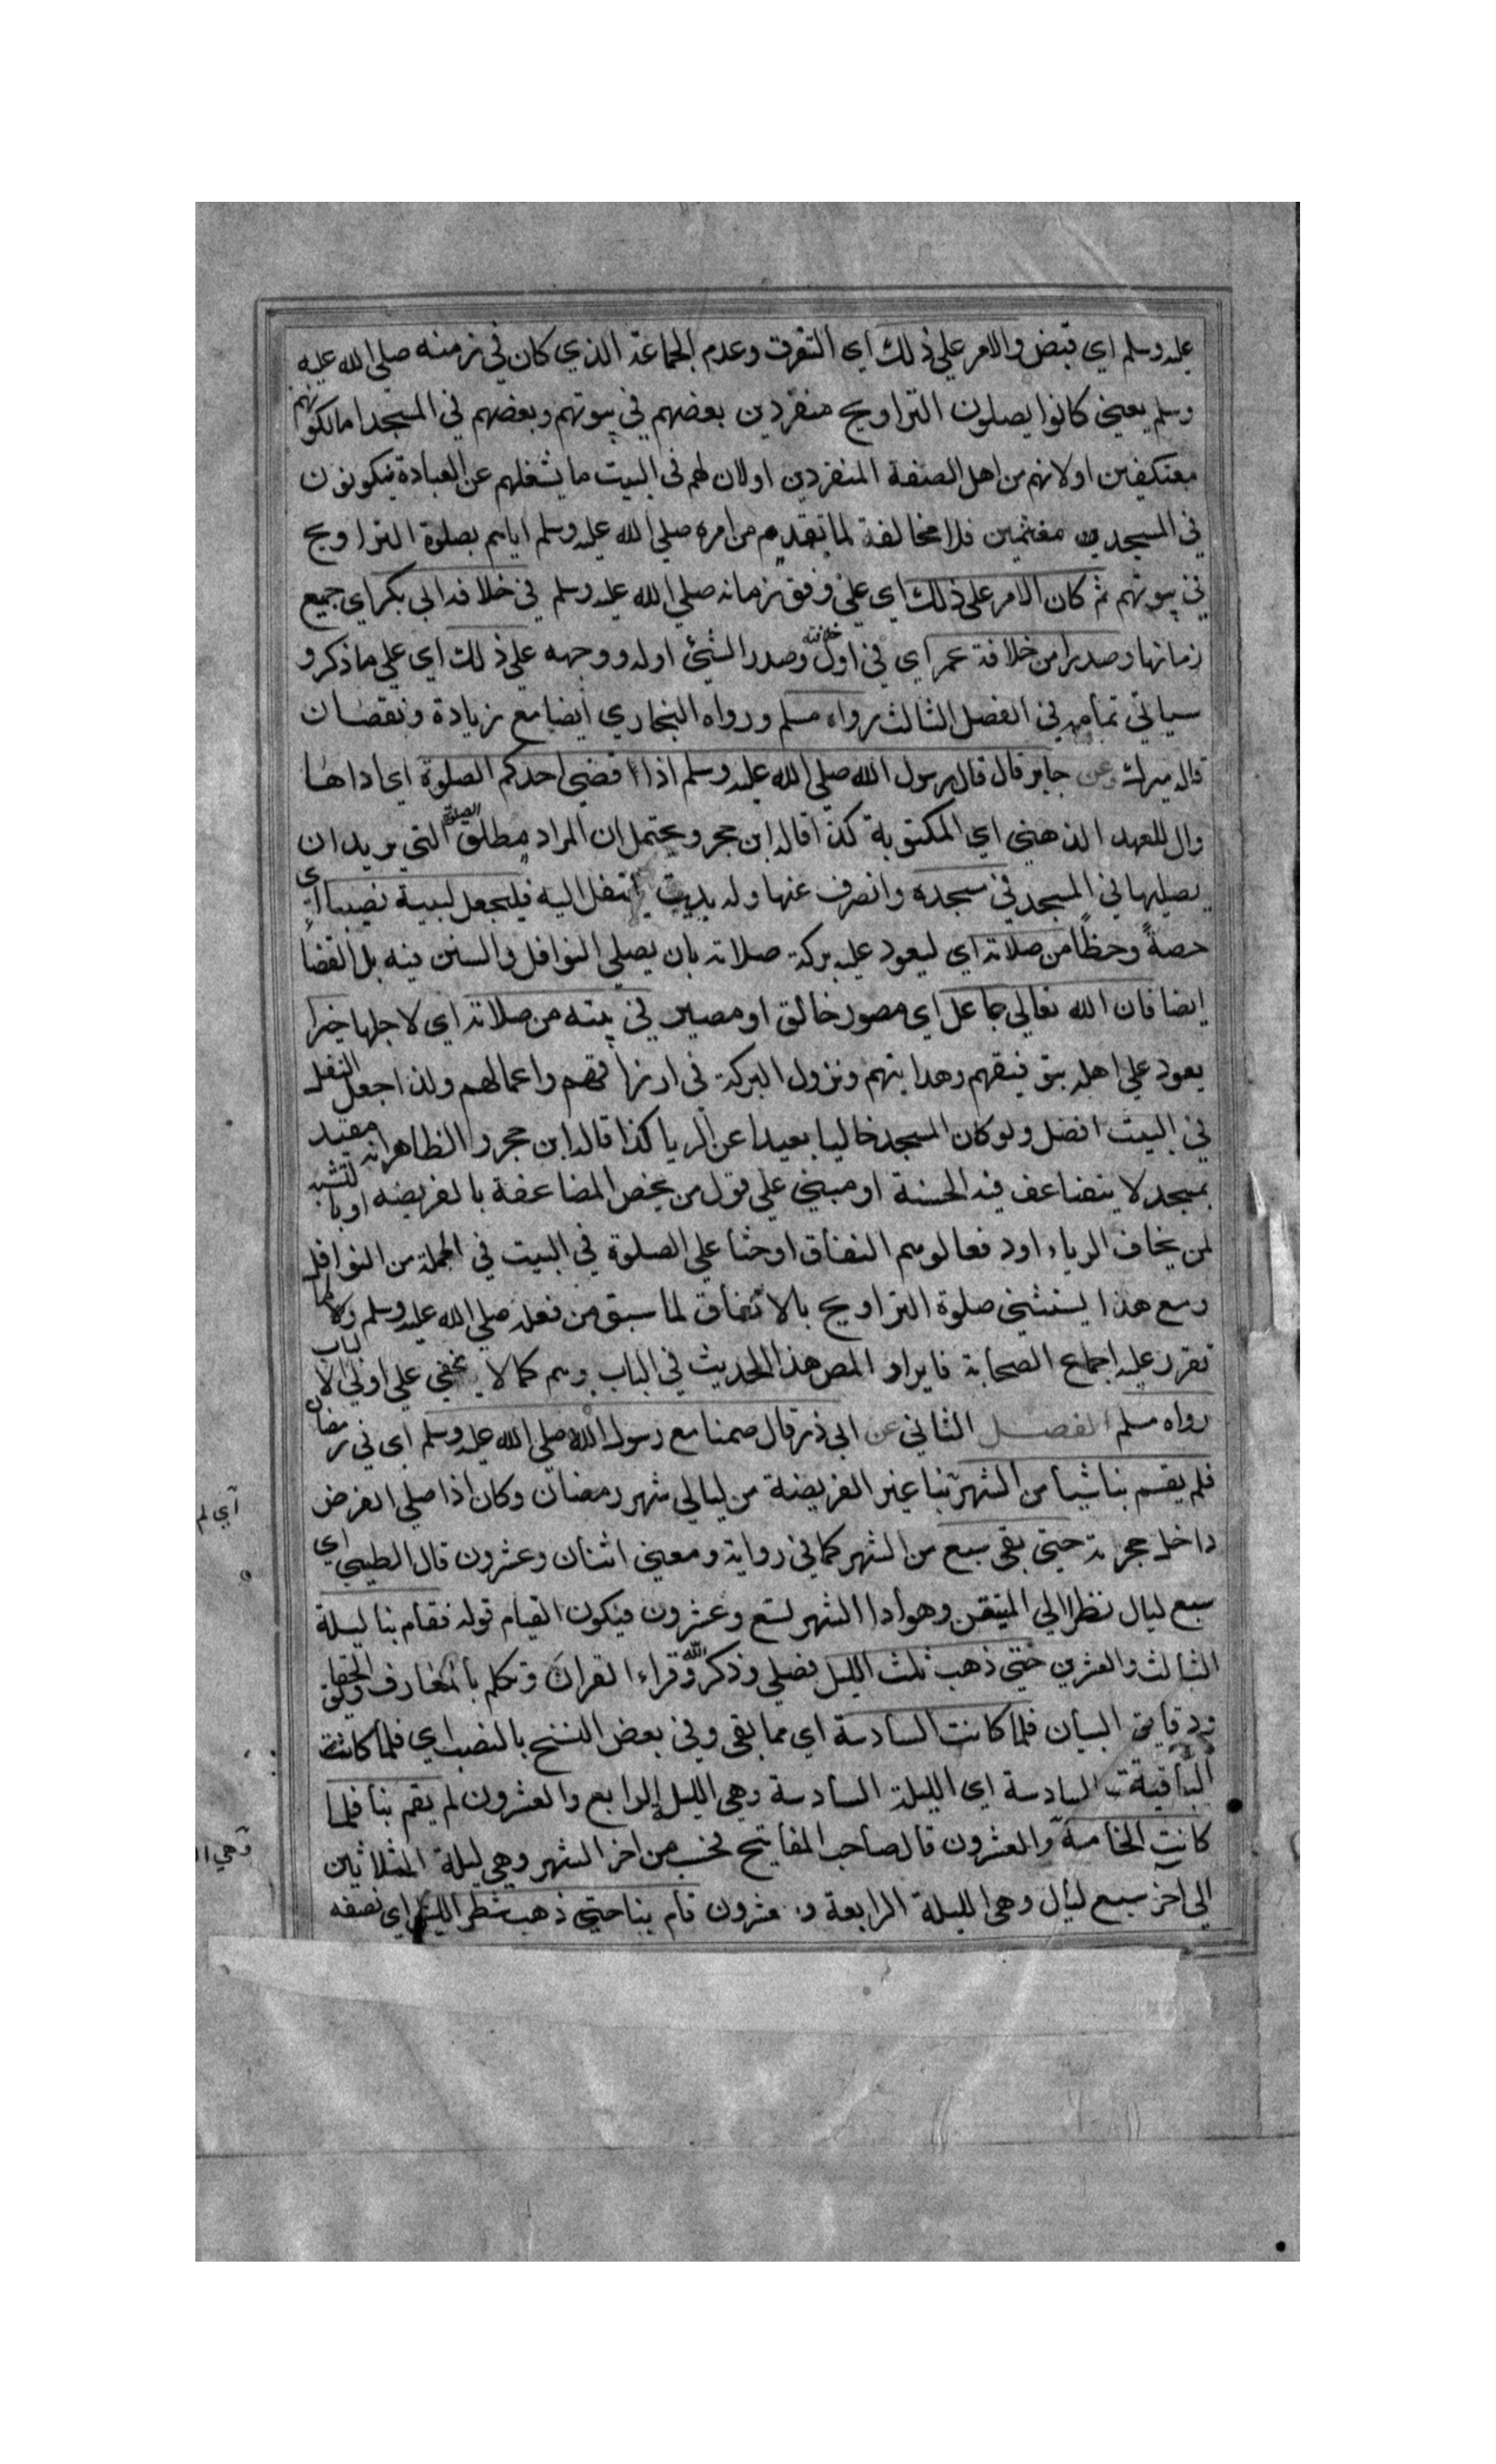 عليه وسلم اي قبض والامر علي ذلك اي التفرق وعدم الجماعة الذي كان في زمنه صلي الله عليه
وسلم يعني كانوا يصلون التراويح منفردين بعضهم في بيوتهم وبعضهم في المسجد اما لكونهم
معتكفين او لانهم من اهل الصفة المنفردين او لان لهم في البيت ما يشغلهم عن العبادة فيكونون
في المسجد مغتنمين فلا مخالفة لما تقدم من امره صلي الله عليه وسلم اياهم بصلوة التراويح
في بيوتهم ثم كان الامر علي ذلك اي علي وفق زمانه صلي الله عليه وسلم في خلافة ابي بكر اي جميع
زمانها وصدرا من خلافة عمر اي في اول خلافته وصدر الشئ اوله ووجهه علي ذلك اي علي ما ذكر و
سياتي تمامه في الفصل الثالث رواه مسلم ورواه البخاري ايضا مع زيادة ونقصان
قاله ميرك وعن جابر قال قال رسول الله صلي الله عليه وسلم اذا قضي احدكم الصلوة اي اداها
وال للعهد الذهني اي المكتوبة كذا قاله ابن حجر ويحتمل ان المراد مطلق الصلوة التي يريد ان
يصليها في المسجد في مسجده وانصرف عنها وله بيت ينتقل اليه فليجعل لبيته نصيبا اي
حصةً وحظًا من صلاته اي ليعود عليه بركة صلاته بان يصلي النوافل والسنن فيه بل القضا
ايضا فان الله تعالي جاعل اي مصور خالق او مصير في بيته من صلاته اي لاجلها خيرا
يعود علي اهله بتوفيقهم وهدايتهم ونزول البركة في ارزاقهم واعمالهم ولذا جعل النفل
في البيت افضل ولو كان المسجد خاليا بعيدا عن الريا كذا قاله ابن حجر والظاهر انه مقيد
بمسجد لا يتضاعف فيه الحسنة او مبني علي قول من يخص المضاعفة بالفريضه او بالنسبة
لمن يخاف الرياء او دفعا لوهم النفاق او حثا علي الصلوة في البيت في الجملة من النوافل
ومع هذا يستثني صلوة التراويح بالاتفاق لما سبق من فعله صلي الله عليه وسلم ولما
تقرر عليه اجماع الصحابة فايراد المص هذا الحديث في الباب وهم كما لا يخفي علي اولي الالباب
رواه مسلم الفصل الثاني عن ابي ذر قال صمنا مع رسول الله صلي الله عليه وسلم اي في رمضان
فلم يقم بنا شيئا من الشهر بنا غير الفريضة من ليالي شهر رمضان وكان اذا صلي الفرض
داخل حجرته حتي بقي سبع من الشهر كما في رواية ومعني اثنان وعشرون قال الطيبي اي
سبع ليال نظرا الي المتيقن وهو ان الشهر تسع وعشرون فيكون القيام قوله فقام بنا ليلة
الثالث والعشرين حتي ذهب ثلث الليل فصلي وذكر الله وقراء القران وتكلم بالمعارف والحقايق
ودقايق البيان فلما كانت السادسة اي مما بقي وفي بعض النسخ بالنصب اي فلما كانت
الباقية السادسة اي الليلة السادسة وهي الليل الرابع والعشرون لم يقم بنا فلما
كانت الخامسة والعشرون قال صاحب المفاتيح فحسب من اخر الشهر وهي ليلة الثلاثين
الي اخر سبع ليال وهي الليلة الرابعة و عشرون قام بنا حتي ذهب شطر الليل اي نصفه
اي لم
وهي